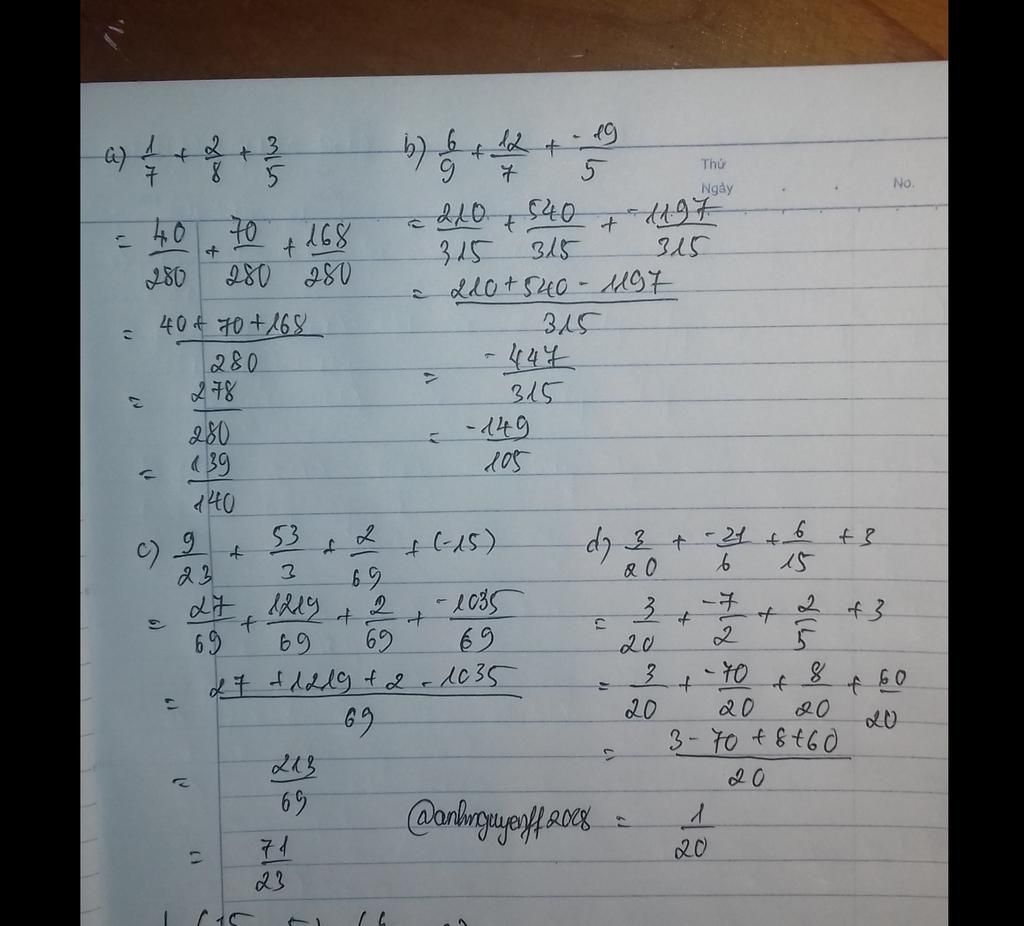 a) 1/7 + 2/8 + 3/5
= 40/280 + 70/280 + 168/280
= (40 + 70 + 168)/280
= 278/280
= 139/140
b) 6/9 + 12/7 + -19/5
Thứ
Ngày . . No.
= 210/315 + 540/315 + -1197/315
= (210 + 540 - 1197)/315
= -447/315
= -149/105
c) 9/23 + 53/3 + 2/69 + (-15)
= 27/69 + 1219/69 + 2/69 + -1035/69
= (27 + 1219 + 2 - 1035)/69
= 213/69
= 71/23
d) 3/20 + -21/6 + 6/15 + 3
= 3/20 + -7/2 + 2/5 + 3
= 3/20 + -70/20 + 8/20 + 60/20
= (3 - 70 + 8 + 60)/20
= 1/20
@anhnguyenff2008